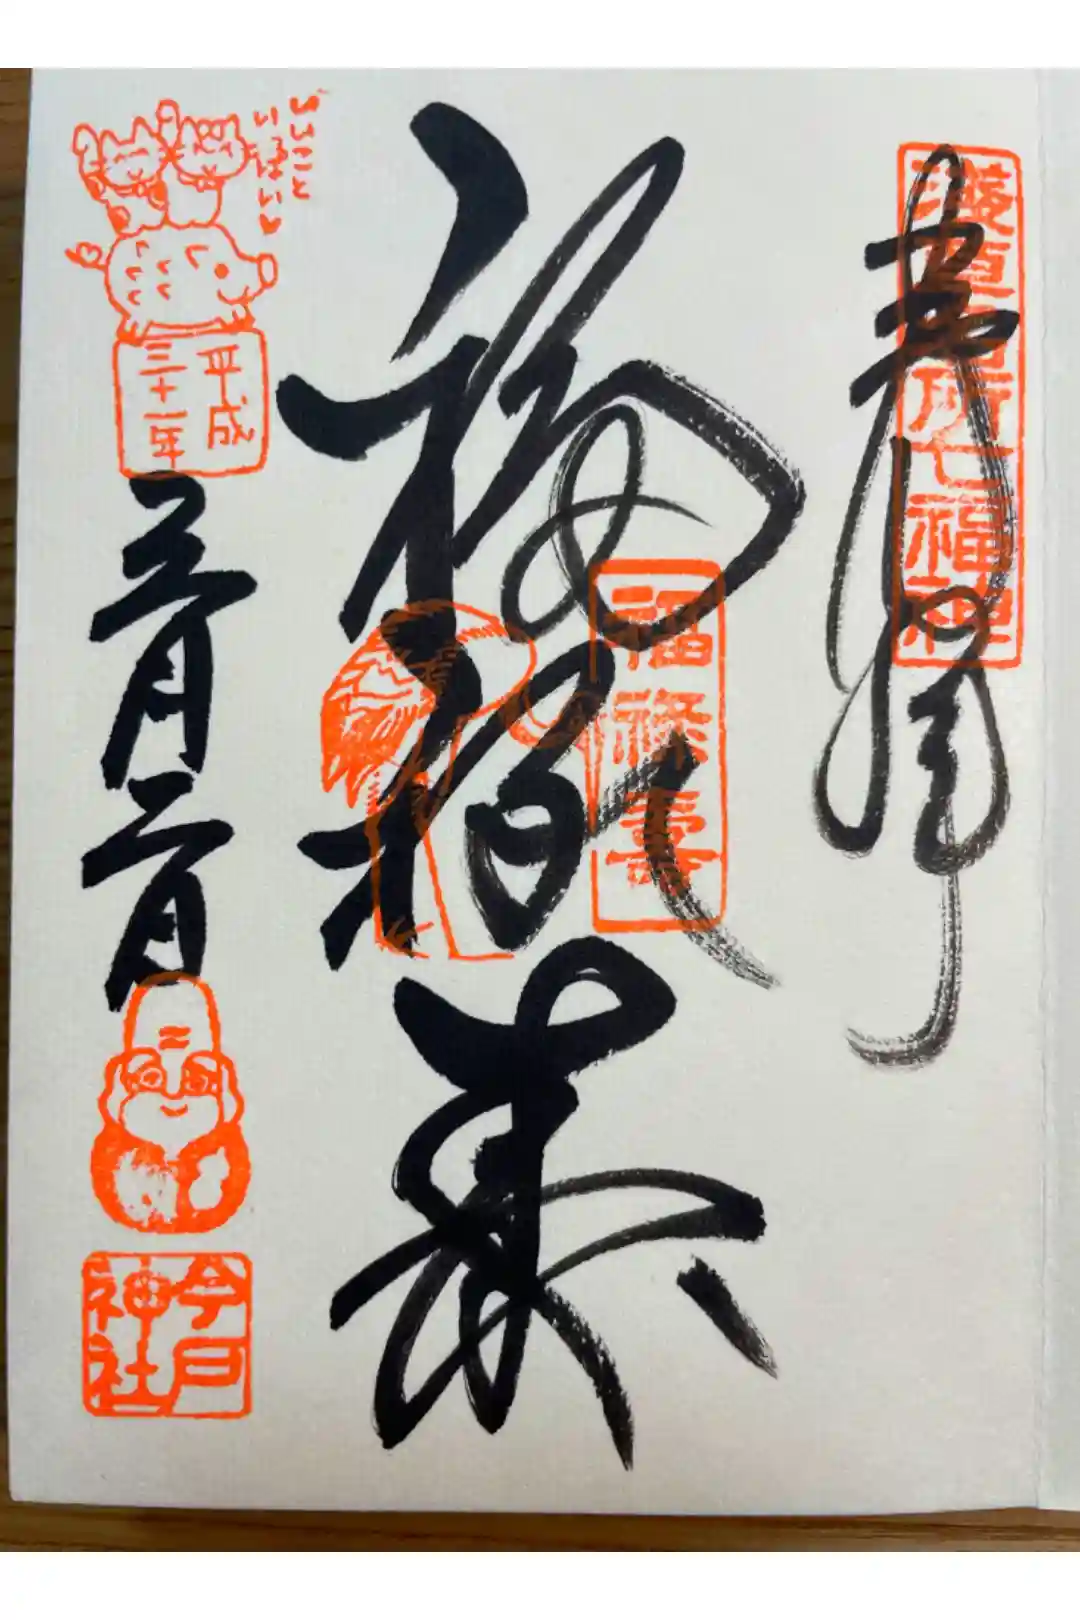 奉拝
浅草名所七福神
福禄寿
福禄壽
いいことい〜ぱい
平成
三十一年
三月二日
今戸
神社